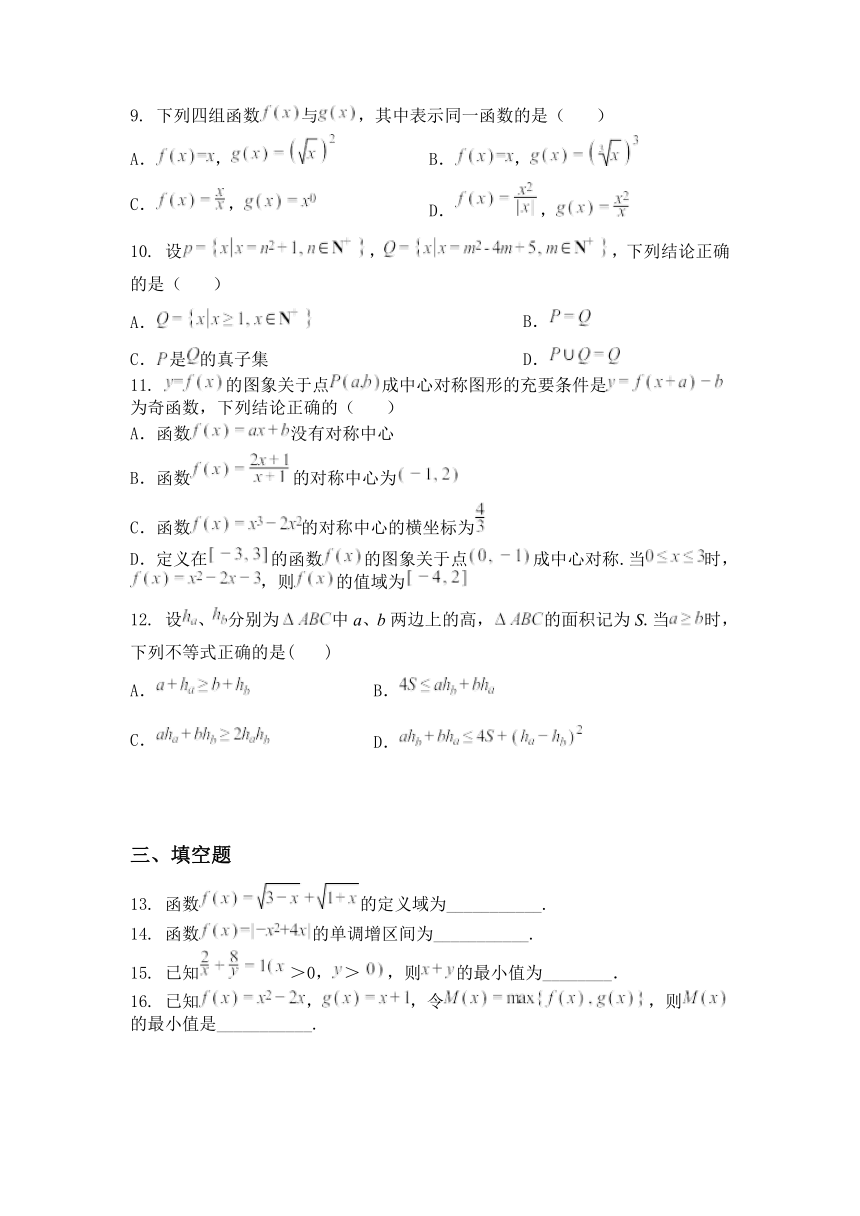 9. 下列四组函数f(x)与g(x),其中表示同一函数的是( )
A. f(x)=x, g(x)=(√x)² B. f(x)=x, g(x)=(∛x)³
C. f(x)=x/x, g(x)=x⁰ D. f(x)=x²/|x|, g(x)=x²/x
10. 设p={x|x=n²+1, n∈N⁺}, Q={x|x=m²-4m+5, m∈N⁺},下列结论正确
的是( )
A. Q={x|x≥1, x∈N⁺} B. P=Q
C. P是Q的真子集 D. P∪Q=Q
11. y=f(x)的图象关于点P(a,b)成中心对称图形的充要条件是y=f(x+a)-b
为奇函数,下列结论正确的( )
A. 函数f(x)=ax+b没有对称中心
B. 函数f(x)=(2x+1)/(x+1)的对称中心为(-1,2)
C. 函数f(x)=x³-2x²的对称中心的横坐标为4/3
D. 定义在[-3,3]的函数f(x)的图象关于点(0,-1)成中心对称.当0≤x≤3时,
f(x)=x²-2x-3,则f(x)的值域为[-4,2]
12. 设hₐ、h_b分别为ΔABC中a、b两边上的高,ΔABC的面积记为S.当a≥b时,
下列不等式正确的是( )
A. a+hₐ≥b+h_b B. 4S≤ah_b+bhₐ
C. ahₐ+bh_b≥2hₐh_b D. ah_b+bhₐ≤4S+(hₐ-h_b)²
三、填空题
13. 函数f(x)=√(3-x)+√(1+x)的定义域为___________.
14. 函数f(x)=|-x²+4x|的单调增区间为___________.
15. 已知2/x+8/y=1(x>0,y>0),则x+y的最小值为________.
16. 已知f(x)=x²-2x, g(x)=x+1,令M(x)=max{f(x),g(x)},则M(x)
的最小值是___________.